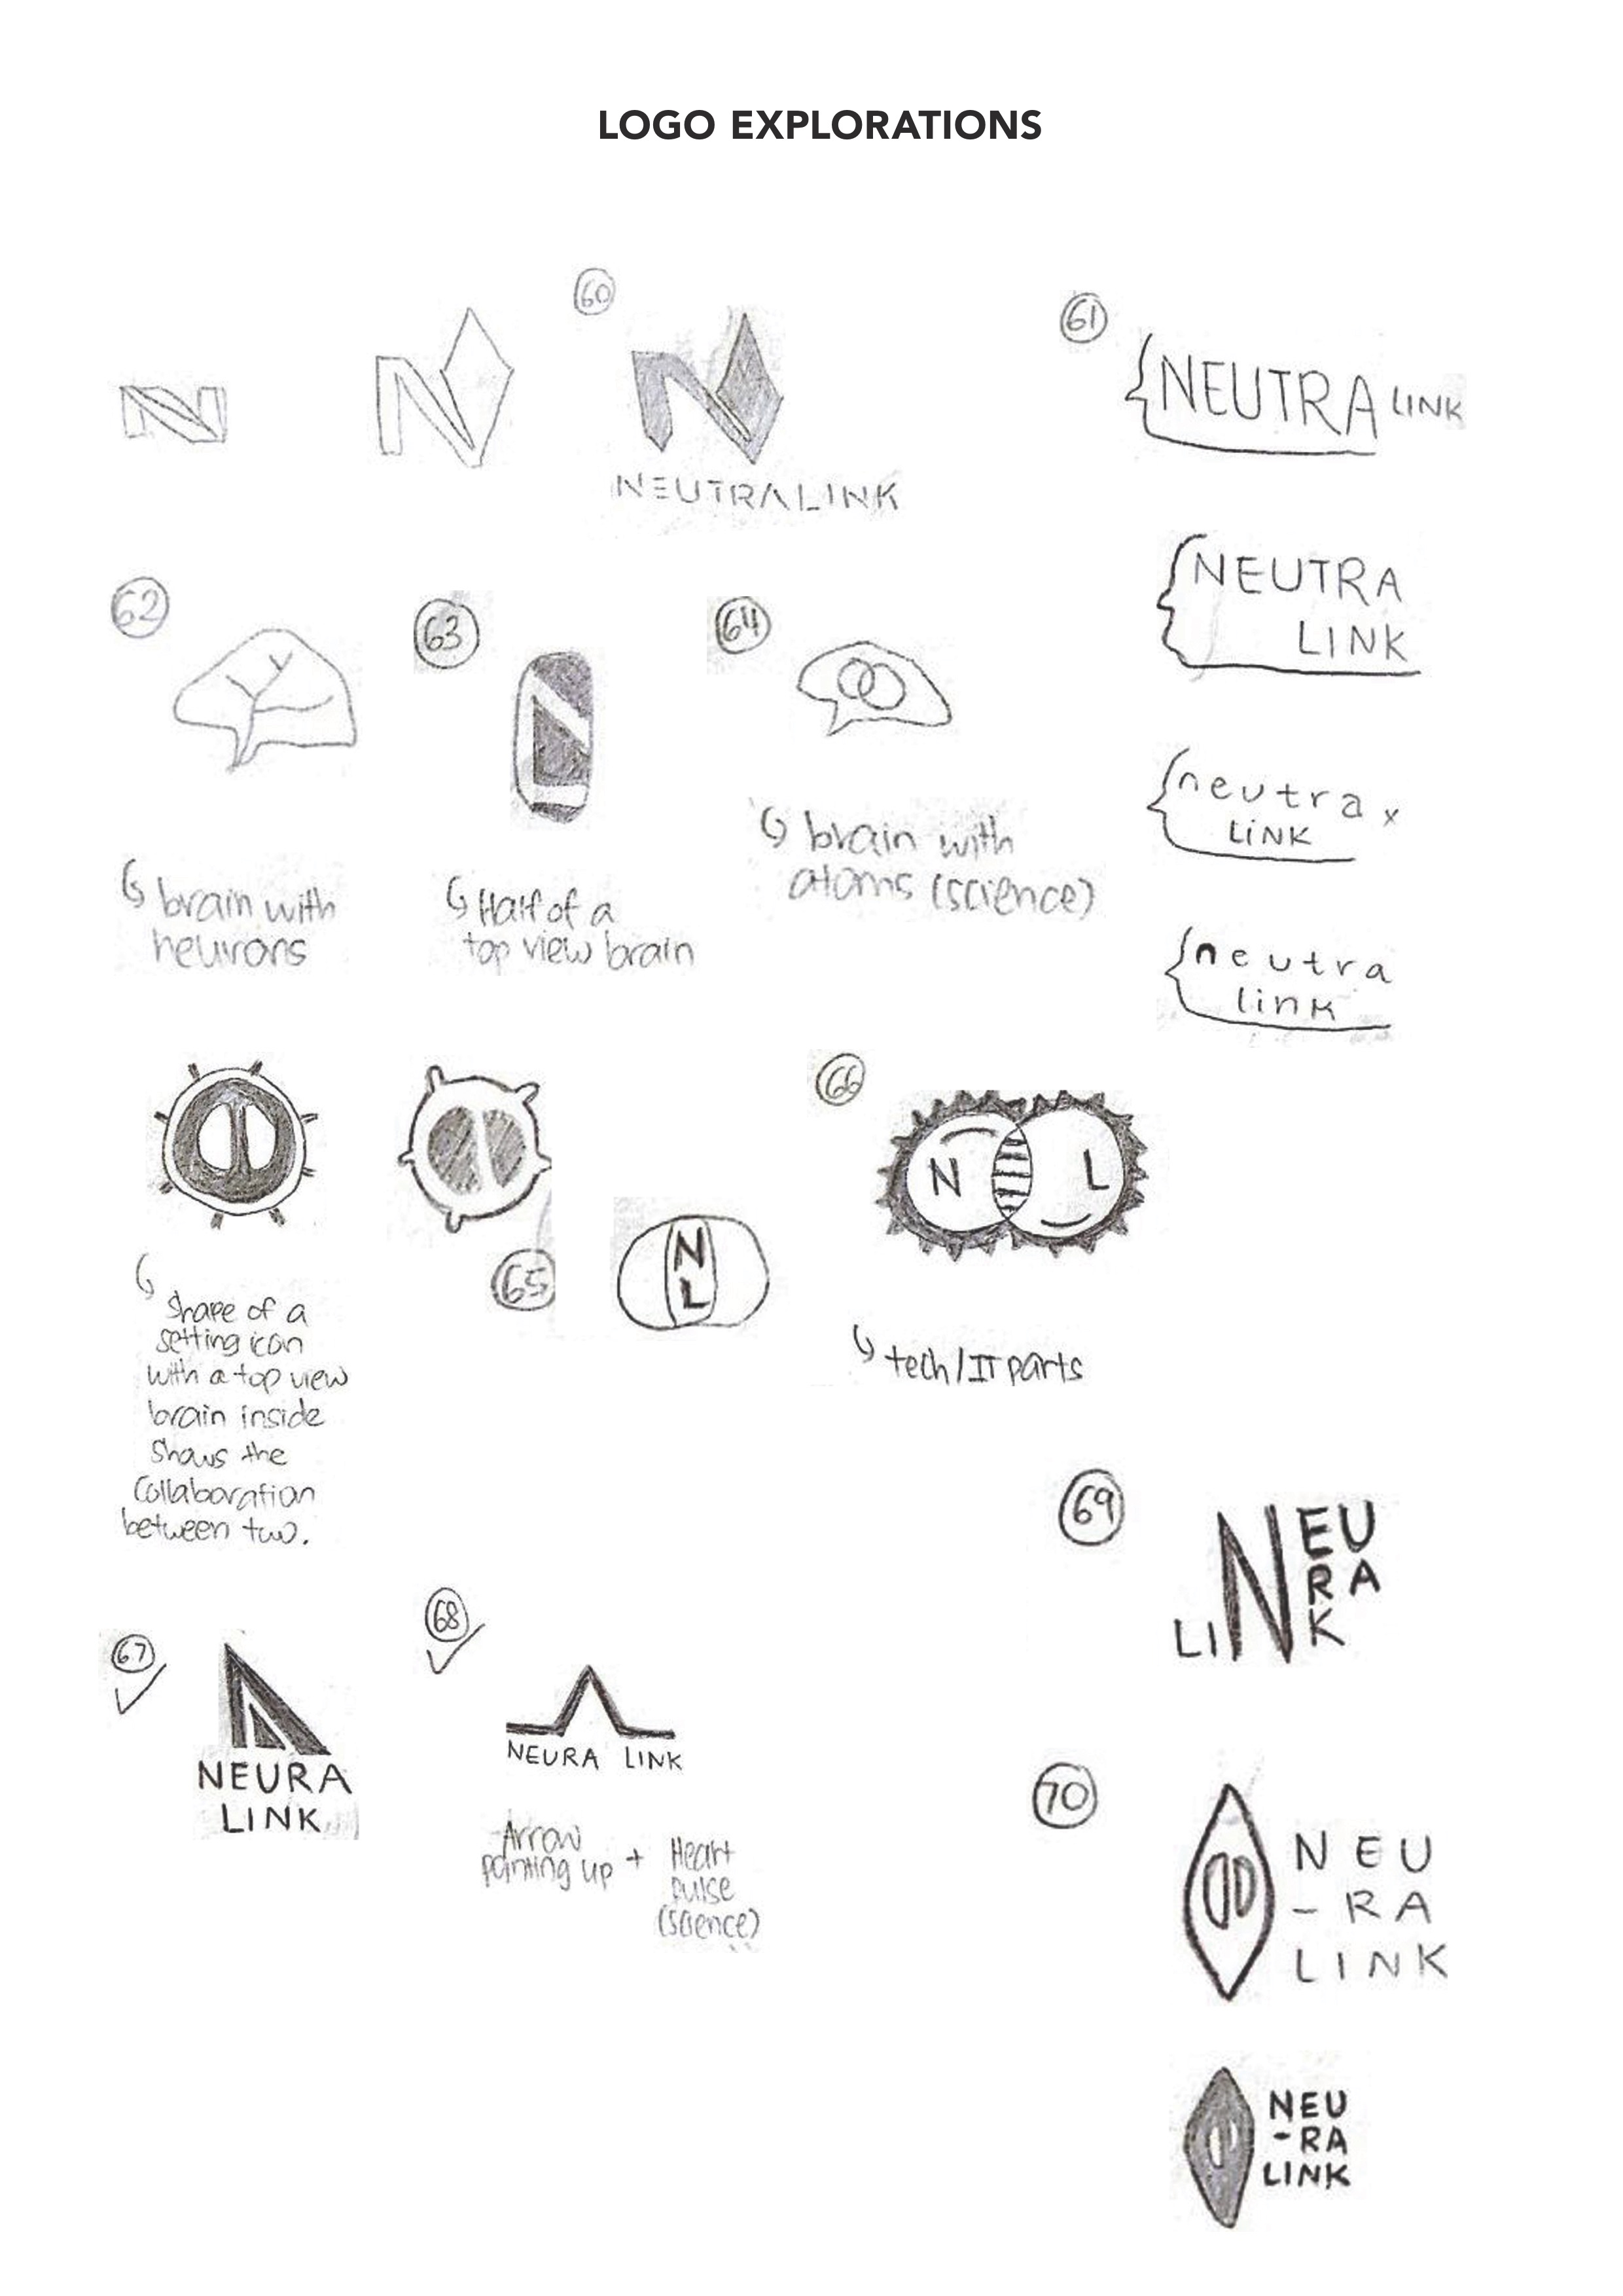 LOGO EXPLORATIONS
60
NEUTRALINK
61
NEUTRA LINK
NEUTRA
LINK
neutra x
LINK
neutra
link
62
brain with
neurons
63
Half of a
top view brain
64
brain with
atoms (science)
Shape of a
setting icon
with a top view
brain inside
shows the
collaboration
between two.
65
N
L
66
N L
tech/IT parts
67
NEURA
LINK
68
NEURA LINK
Arrow
pointing up + Heart
pulse
(science)
69
NEU
RA
LINK
70
NEU
-RA
LINK
NEU
-RA
LINK